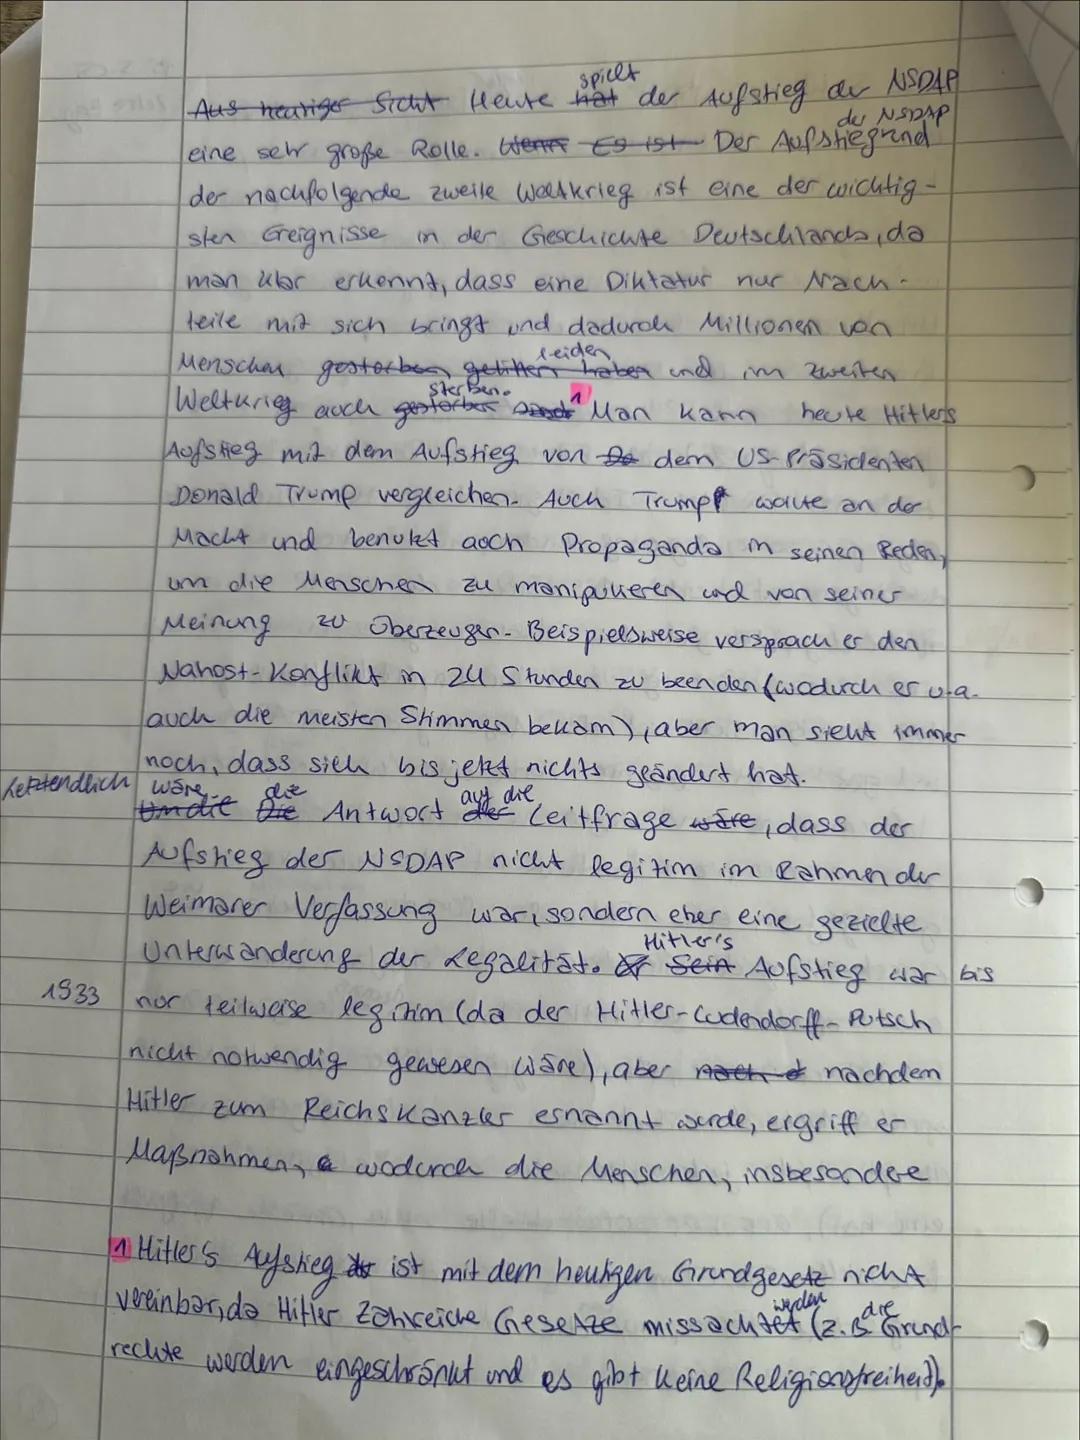 spielt
Aus heutiger Sicht Heute hat der Aufstieg der NSDAP
der NSDAP
eine sehr große Rolle. Wenn Es ist Der Aufstieg und
der nachfolgende zweite Weltkrieg ist eine der wichtig-
sten Ereignisse in der Geschichte Deutschlands, da
man klar erkennt, dass eine Diktatur nur Nach-
teile mit sich bringt und dadurch Millionen von
leiden
Menschen gestorben, gelitten haben und im zweiten
sterben. 1
Weltkrieg auch gestorben sind Man kann heute Hitler's
Aufstieg mit dem Aufstieg von De dem US-Präsidenten
Donald Trump vergleichen. Auch Trump wollte an der
Macht und benutzt auch Propaganda in seinen Reden,
um die Menschen zu manipulieren und von seiner
Meinung zu überzeugen. Beispielsweise versprach er den
Nahost-Konflikt in 24 Stunden zu beenden (wodurch er u.a.
auch die meisten Stimmen bekam), aber man sieht immer
noch, dass sich bis jetzt nichts geändert hat.
Letztendlich wäre die auf die
Um die Die Antwort der Leitfrage wäre, dass der
Aufstieg der NSDAP nicht legitim im Rahmen der
Weimarer Verfassung war, sondern eher eine gezielte
Hitler's
Unterwanderung der Legalität. Sein Aufstieg war bis
1933 nur teilweise legitim (da der Hitler-Ludendorff-Putsch
nicht notwendig gewesen wäre), aber nach d nachdem
Hitler zum Reichskanzler ernannt wurde, ergriff er
Maßnahmen, wodurch die Menschen, insbesondere
1 Hitler's Aufstieg ist mit dem heutigen Grundgesetz nicht
werden die
vereinbar, da Hitler zahlreiche Gesetze missachtet (z.B. Grund-
rechte werden eingeschränkt und es gibt keine Religionsfreiheit).